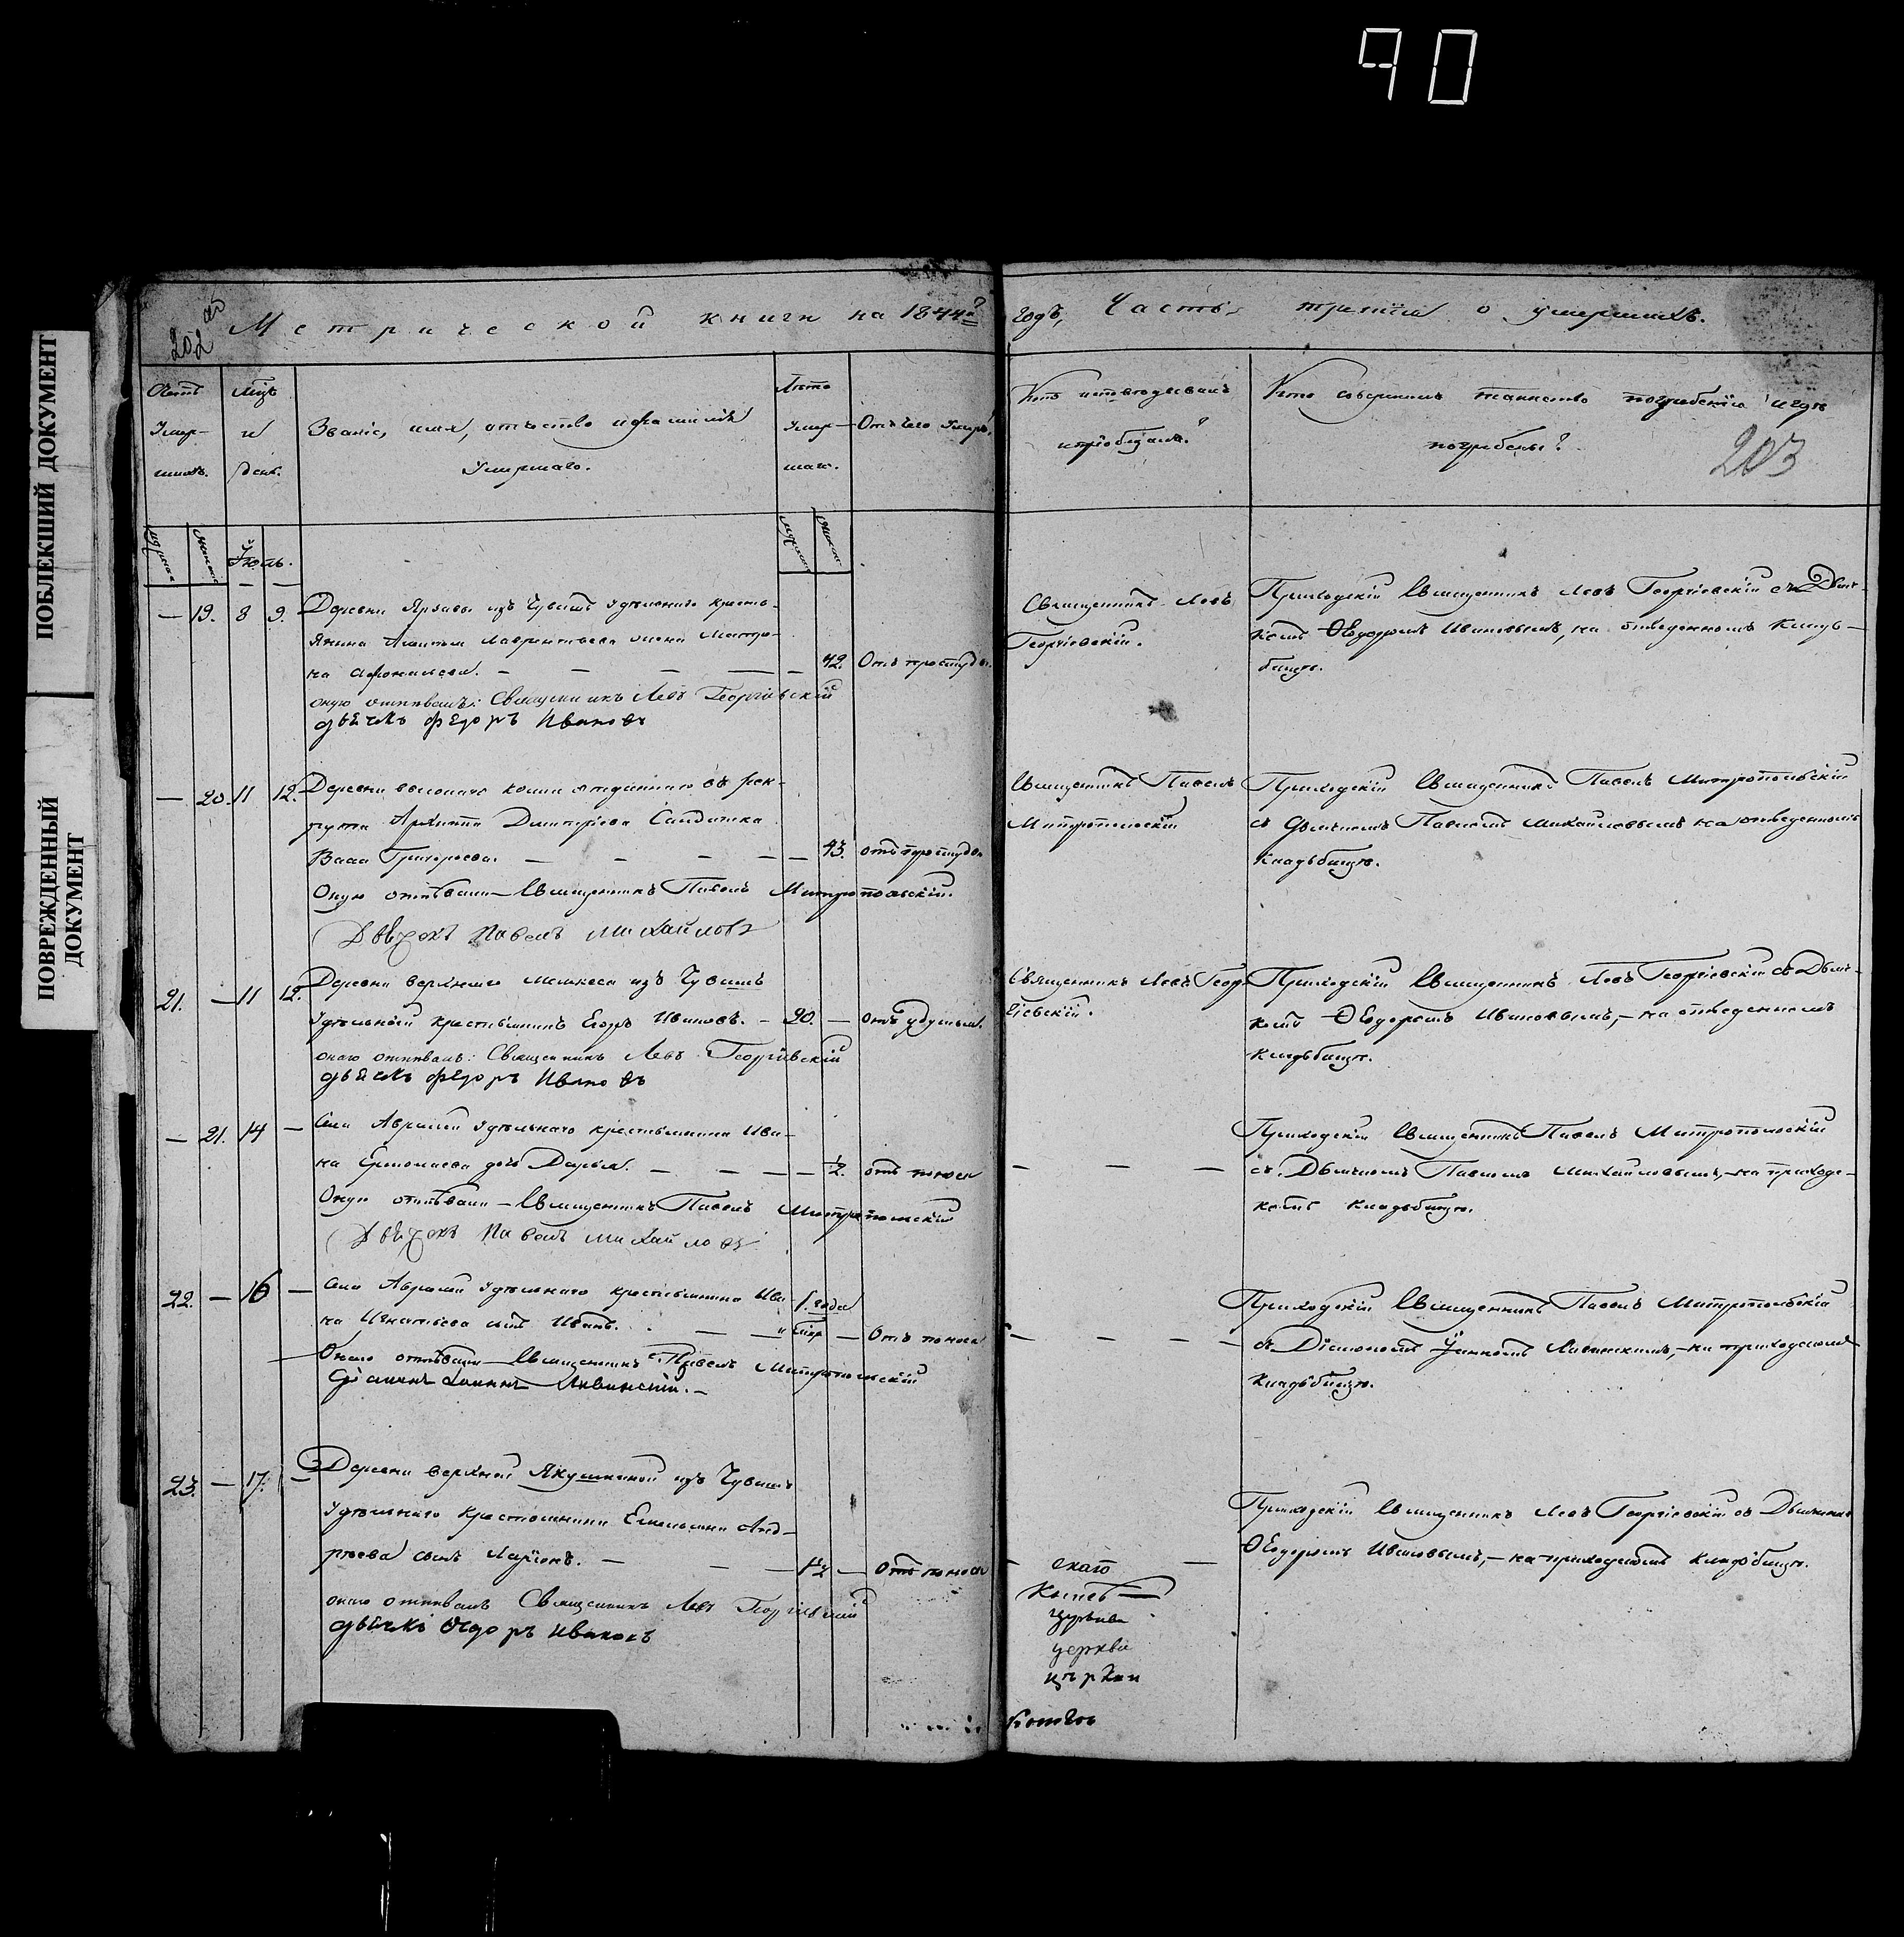 90
ПОБЛЕКШИЙ ДОКУМЕНТ
ПОВРЕЖДЕННЫЙ
ДОКУМЕНТ
202 об
Метрической книги на 1844й
годъ, Часть третія о умершихъ.
203
Счетъ
Умер-
шихъ.
Мѣц
и
день.
Званіе, имя, отечество и фамилія
Умершаго.
Лѣта
Умер-
шаго.
Отъ чего Умеръ?
Кто исповѣдывалъ
и пріобщалъ?
Кто совершилъ таинство погребенія и гдѣ
погребены?
Іюль.
— 19. 8 9. Деревни из Чувашъ удѣльнаго кресть-
янина Лаврентьева жена Матрё-
на Афонасьева. — — — — 42. Отъ простуды
оную отпѣвалъ: Священникъ Левъ Георгіевскій
дьячекъ Федоръ Ивановъ
Священникъ Левъ
Георгіевскій.
Приходскій Священникъ Левъ Георгіевскій съ Дьяч-
комъ Ѳеодоромъ Ивановымъ, на отведенномъ кладъ-
бищѣ.
— 20. 11 12. Деревни отданнаго въ рек-
рута Архиппа Дмитріева Салдатка
Васса Григорьева. — — — — 43. отъ простуды
Оную отпѣвали Священникъ Павелъ Митропольскій.
Дьячекъ Павелъ Михайловъ
Священникъ Павелъ
Митропольскій
Приходскій Священникъ Павелъ Митропольскій
съ Дьячкомъ Павломъ Михайловымъ на отведенномъ
кладьбищѣ.
21. — 11 12. Деревни верхняго Мелекеса изъ Чувашъ
Удѣльный крестьянинъ Егоръ Ивановъ. — 20. —
онаго отпѣвалъ: Священникъ Левъ Георгіевскій
дьячекъ Федоръ Ивановъ
Священникъ Левъ Геор-
гіевскій.
Приходскій Священникъ Левъ Георгіевскій съ Дьяч-
комъ Ѳеодоромъ Ивановымъ, — на отведенномъ
кладьбищѣ.
— 21. 14 — Села Авралей Удѣльнаго крестьянина Ива-
на Ермолаева дочь Дарья. — — — — 1/2. отъ поноса
Оную отпѣвали — Священникъ Павелъ Митропольскій
Дьячекъ Павелъ Михайловъ
— — —
Приходскій Священникъ Павелъ Митропольскій
съ Дьячкомъ Павломъ Михайловымъ, — на приход-
комъ кладьбищѣ.
22. — 16 — Села Авралей Удѣльнаго крестьянина Ива-
на Игнатьева сынъ Иванъ. — — 1. года — Отъ поноса
Онаго отпѣвали — Священникъ Павелъ Митропольскій
Діаконъ Іоаннъ Ливинскій. —
— — — —
Приходскій Священникъ Павелъ Митропольскій
съ Діакономъ Іоанномъ Ливинскимъ, — на приходскомъ
кладьбищѣ.
23. — 17. — Деревни верхней Якушкиной изъ Чувашъ
Удѣльнаго крестьянина Емельяна Анд-
реева сынъ Ларіонъ. — — — 1/2 — Отъ поноса
онаго отпѣвалъ Священникъ Левъ Георгіевскій
дьячекъ Ѳедоръ Ивановъ
Приходскій Священникъ Левъ Георгіевскій съ Дьячкомъ
Ѳеодоромъ Ивановымъ, — на приходскомъ кладьбищѣ.
скаго
церкви